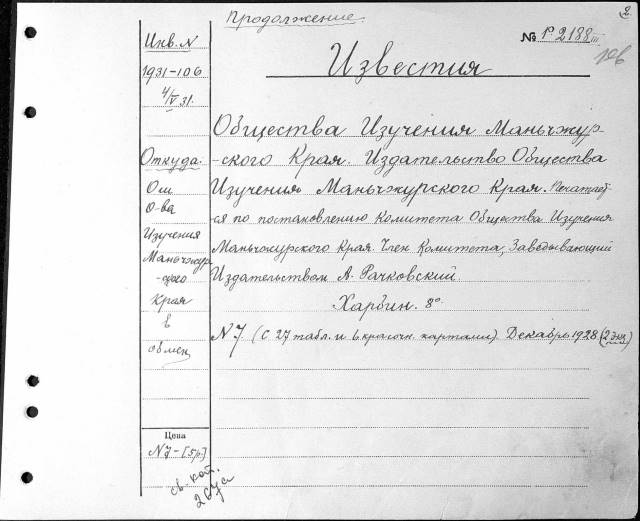 Продолжение.
2
№ Р. 2188 III
Известия
Инв. N
1931-106
4/V 31.
Откуда.
От
О-ва
Изучения
Маньчжур-
-ского
Края
в
обмен
Общества Изучения Маньчжур-
-ского Края. Издательство Общества
Изучения Маньчжурского Края. Печатает-
ся по постановлению Комитета Общества Изучения
Маньчжурского Края. Член Комитета, Заведывающий
Издательством А. Рачковский.
Харбин. 8°
N 7. (С 27 табл. и 6 красочн. картами). Декабрь 1928 (2 экз)
Цена
N 7 - [5 р.]
св. кат.
267a